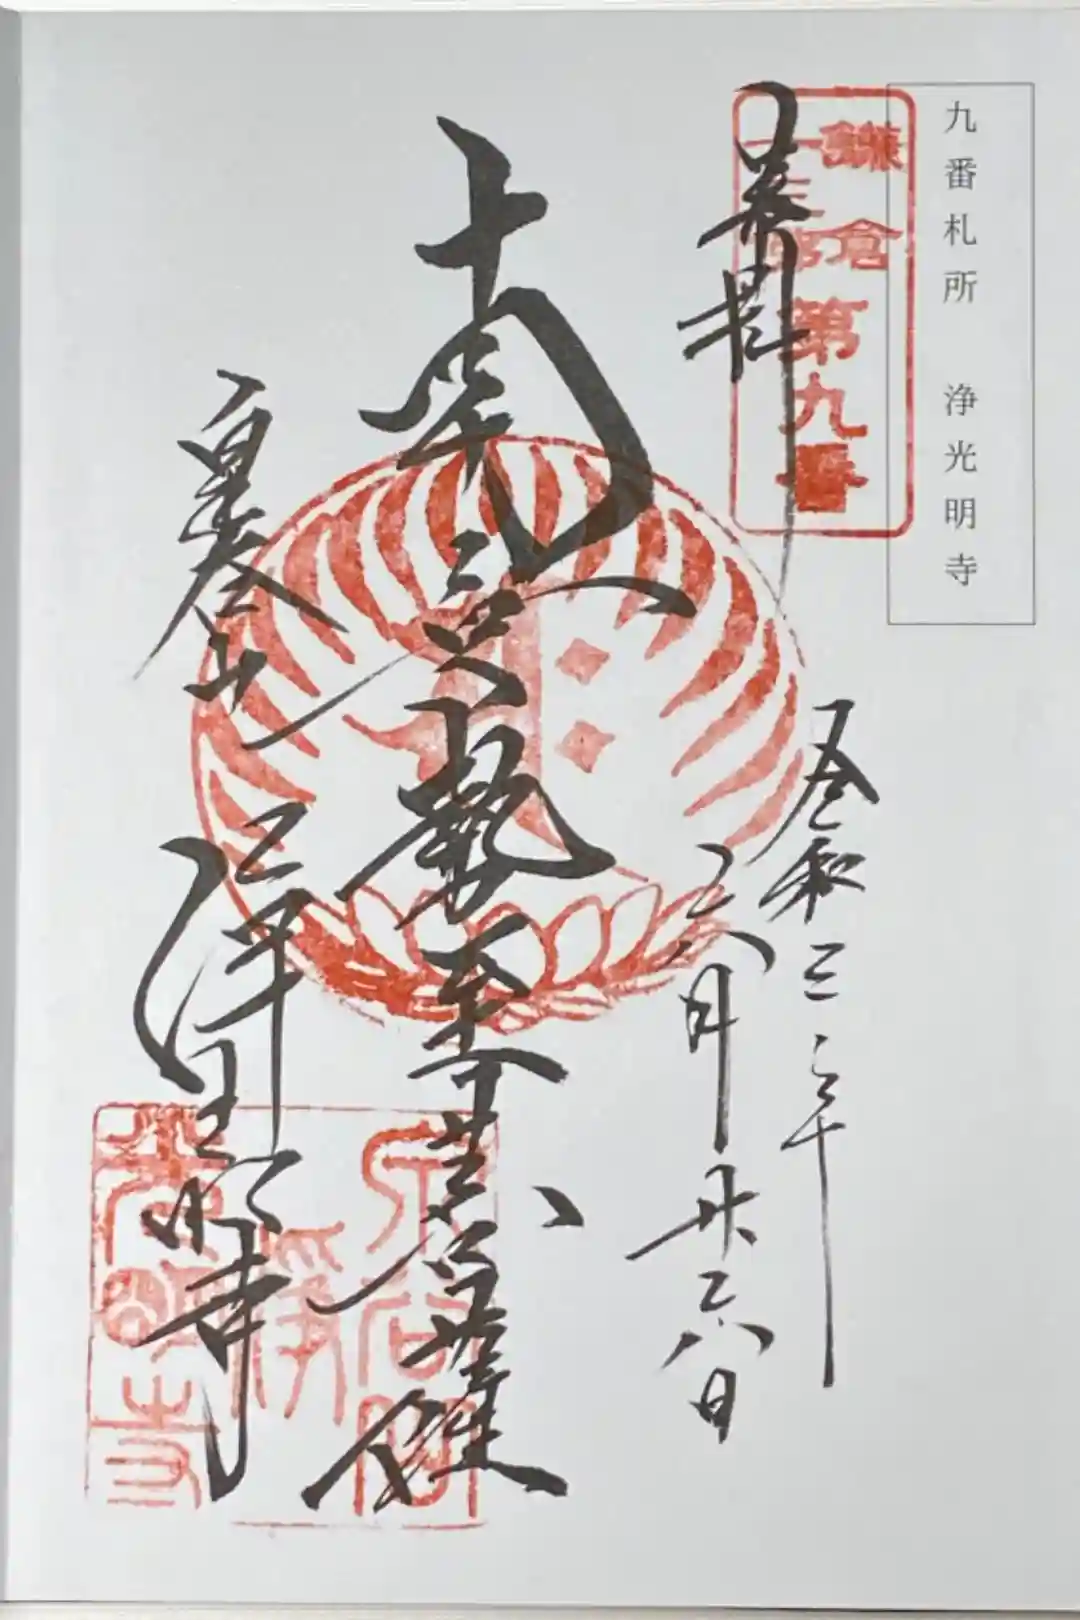 九番札所 浄光明寺
鎌倉
十三佛
第九番
奉拝
令和三年
六月廿六日
南無大勢至菩薩
泉谷山
浄光明寺
光明寺